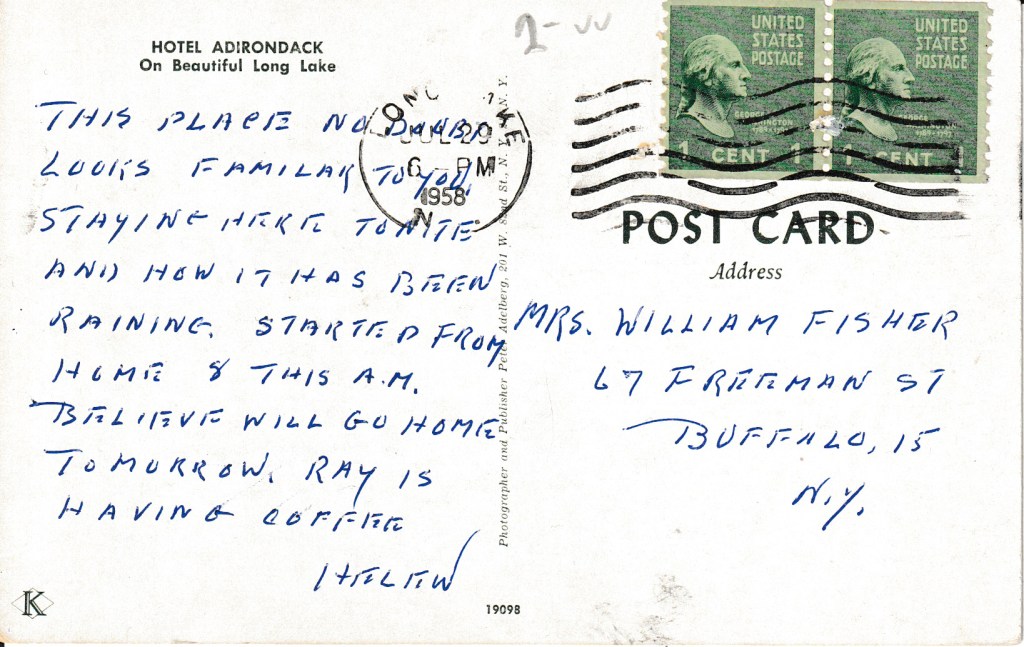 HOTEL ADIRONDACK
On Beautiful Long Lake
THIS PLACE NO DOUBT
LOOKS FAMILAR TO YOU.
STAYING HERE TONITE
AND HOW IT HAS BEEN
RAINING. STARTED FROM
HOME 8 THIS A.M.
BELIEVE WILL GO HOME
TOMORROW. RAY IS
HAVING COFFEE
HELEN
K
19098
Photographer and Publisher Peter Adelberg, 201 W. 52nd St., N. Y. 19, N. Y.
LONG LAKE
JUL 20
6 PM
1958
N
UNITED
STATES
POSTAGE
GEORGE
WASHINGTON
1 CENT 1
UNITED
STATES
POSTAGE
GEORGE
WASHINGTON
1 CENT 1
POST CARD
Address
MRS. WILLIAM FISHER
67 FREEMAN ST
BUFFALO, 15
N.Y.